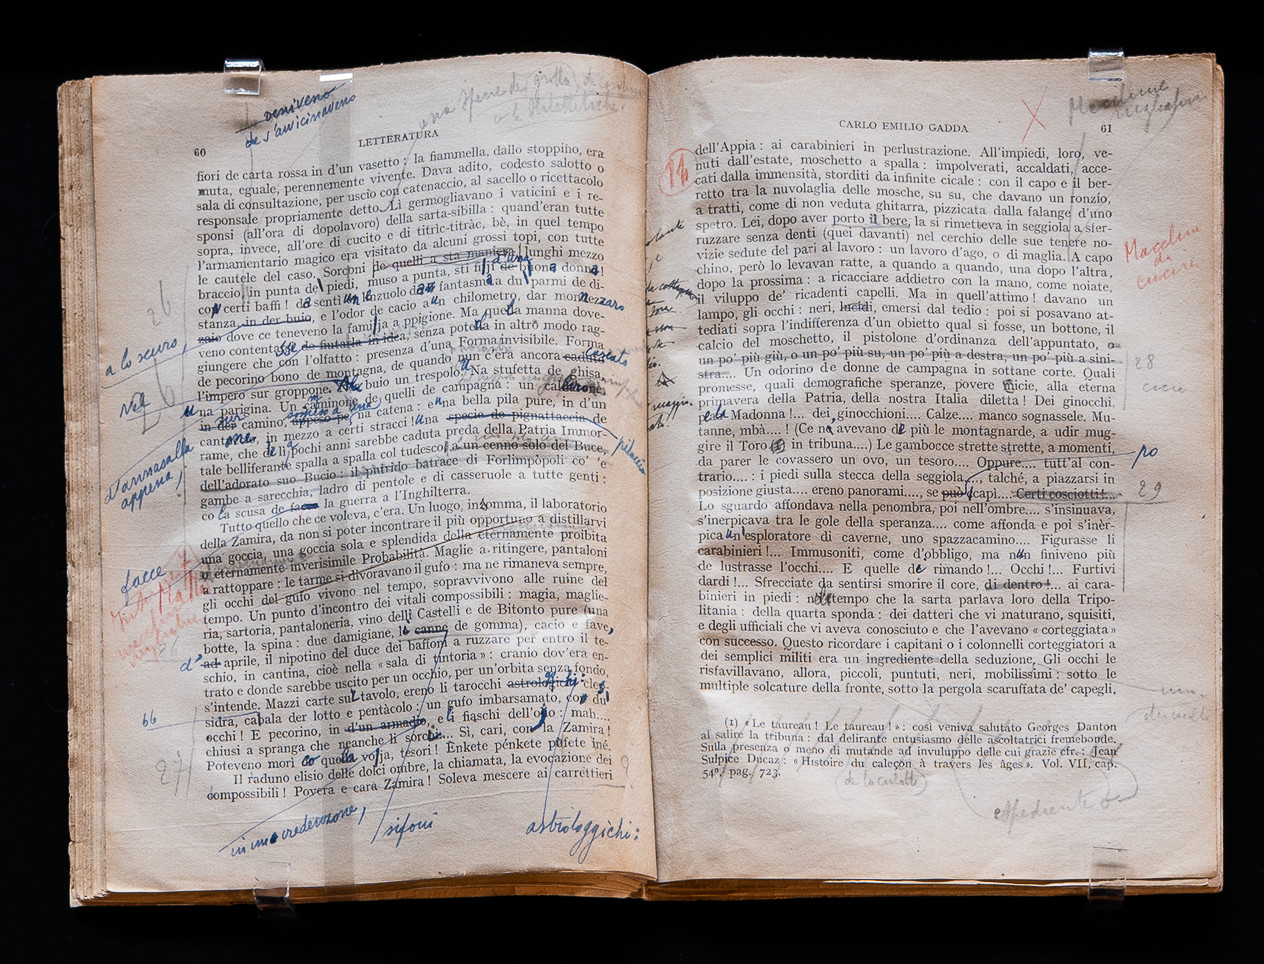 veniveno
che s'avvicinaveno
LETTERATURA
60
fiori de carta rossa in d'un vasetto : la fiammella, dallo stoppino, era
muta, eguale, perennemente vivente. Dava adito, codesto salotto o
sala di consultazione, per uscio con catenaccio, al sacello o ricettacolo
responsale propriamente detto. Lì germogliavano i vaticinî e i re-
sponsi (all'ora di dopolavoro) della sarta-sibilla : quand'eran tutte
sopra, invece, all'ore di cucito e di titric-titràc, bè, in quel tempo
l'armamentario magico era visitato da alcuni grossi topi, con tutte
le cautele del caso. Sorconi de quelli a sta maniera! lunghi mezzo
braccio, in punta de piedi, muso a punta, sti fiji de bona donna!
co certi baffi! a sentì
stanza, in der buio, e l'odor de cacio a un chilometro, dar mezzaro
zaio dove ce teneveno la famija a ppigione. Ma quela manna dove-
veno contentasse de fiutarla in idea, senza potella in altro modo rag-
giungere che con l'olfatto : presenza d'una Forma invisibile. Forma
de pecorino bono de montagna, de quando nun c'era ancora caduto cascato
l'impero sur groppone. Ner buio un trespolo. Na stufetta de ghisa,
na parigina. Un caminone de quelli de campagna : in un calderone,
in der camino, appeso pe na catena : e una bella pila pure, in d'un
cantone, in mezzo a certi stracci! Una specie de pignattaccia de
rame, che de lì a pochi anni sarebbe caduta preda della Patria Immor-
tale belliferante spalla a spalla col tudesco, a un cenno solo del Buce,
dell'adorato suo Bucio : il putrido batrace di Forlimpòpoli co' 'e
gambe a sarecchia, ladro di pentole e di casseruole a tutte genti :
co la scusa de facce la guerra a l'Inghilterra.
Tutto quello che ce voleva, c'era. Un luogo, insomma, il laboratorio
della Zamira, da non si poter incontrare il più opportuno a distillarvi
una goccia, una goccia sola e splendida della eternamente proibita
o eternamente inverisimile Probabilità. Maglie a ritingere, pantaloni
a rattoppare : le tarme si divoravano il gufo : ma ne rimaneva sempre,
gli occhi del gufo vivono nel tempo, sopravvivono alle ruine del
tempo. Un punto d'incontro dei vitali compossibili : magia, maglie-
ria, sartoria, pantaloneria, vino delli Castelli e de Bitonto pure (una
botte, la spina : due damigiane, le canne de gomma), cacio e fave,
ad aprile, il nipotino del duce dei baffoni a ruzzare per entro il te-
schio, in cantina, cioè nella « sala di tintoria » : cranio dov'era en-
trato e donde sarebbe uscito per un occhio, per un'orbita senza fondo,
s'intende. Mazzi carte sul tavolo, ereno li tarocchi astrologgichi
sidra, cabala der lotto e pentàcolo : un gufo imbarsamato, co du
occhi! E pecorino, in d'un armadio, e li fiaschi dell'ojo : mah....
chiusi a spranga che neanche li sorchi.... Sì, cari, con la Zamira!
Poteveno morì co quella voja, tesori! Enkete pénkete pùfete iné.
Il raduno elisio delle dolci ombre, la chiamata, la evocazione dei
compossibili! Povera e cara Zamira! Soleva mescere ai carrettieri
a lo scuro,
appena,
facce
d'
66
27
in una credenzone,
sifoni
astrologgichi :
CARLO EMILIO GADDA
61
dell'Appia : ai carabinieri in perlustrazione. All'impiedi, loro, ve-
nuti dall'estate, moschetto a spalla : impolverati, accaldati, acce-
cati dalla immensità, storditi da infinite cicale : con il capo e il ber-
retto tra la nuvolaglia delle mosche, su, su, che davano un ronzìo,
a tratti, come di non veduta ghitarra, pizzicata dalla falange d'uno
spetro. Lei, dopo aver porto il bere, la si rimetteva in seggiola a sfer-
ruzzare senza denti (quei davanti) nel cerchio delle sue tenere no-
vizie sedute del pari al lavoro : un lavoro d'ago, o di maglia. A capo
chino, però lo levavan ratte, a quando a quando, una dopo l'altra,
dopo la prossima : a ricacciare addietro con la mano, come noiate,
il viluppo de' ricadenti capelli. Ma in quell'attimo! davano un
lampo, gli occhi : neri, lucidi, emersi dal tedio : poi si posavano at-
tediati sopra l'indifferenza d'un obietto qual si fosse, un bottone, il
calcio del moschetto, il pistolone d'ordinanza dell'appuntato, o
un po' più giù, o un po' più su, un po' più a destra, un po' più a sini-
stra.... Un odorino de donne de campagna in sottane corte. Quali
promesse, quali demografiche speranze, povere cicie, alla eterna
primavera della Patria, della nostra Italia diletta! Dei ginocchi,
Madonna!... dei ginocchioni.... Calze.... manco sognassele. Mu-
tanne, mbà....! (Ce n'avevano de più le montagnarde, a udir mug-
gire il Toro (1) in tribuna....) Le gambocce strette strette, a momenti,
da parer le covassero un ovo, un tesoro.... Oppure.... tutt'al con-
trario.... : i piedi sulla stecca della seggiola...., talché, a piazzarsi in
posizione giusta.... ereno panorami...., se può capì.... Certi cosciotti!...
Lo sguardo affondava nella penombra, poi nell'ombre.... s'insinuava,
s'inerpicava tra le gole della speranza.... come affonda e poi s'inèr-
pica un esploratore di caverne, uno spazzacamino.... Figurasse li
carabinieri!... Immusoniti, come d'obbligo, ma nun finiveno più
de lustrasse l'occhi.... E quelle de rimando!... Occhi!... Furtivi
dardi!... Sfrecciate da sentirsi smorire il core, di dentro!... ai cara-
binieri in piedi : nel tempo che la sarta parlava loro della Tripo-
litania : della quarta sponda : dei datteri che vi maturano, squisiti,
e degli ufficiali che vi aveva conosciuto e che l'avevano « corteggiata »
con successo. Questo ricordare i capitani o i colonnelli corteggiatori a
dei semplici militi era un ingrediente della seduzione. Gli occhi le
risfavillavano, allora, piccoli, puntuti, neri, mobilissimi : sotto le
multiple solcature della fronte, sotto la pergola scaruffata de' capegli,
(1) « Le taureau! Le taureau! » : così veniva salutato Georges Danton
al salire la tribuna : dal delirante entusiasmo delle ascoltatrici fremebonde.
Sulla presenza o meno di mutande ad involuppo delle cui grazie cfr. : Jean
Sulpice Ducaz : « Histoire du caleçon à travers les âges ». Vol. VII, cap.
54°, pag. 723.
Macchina
di
cucire
28
po
29
de la culotte
espediente